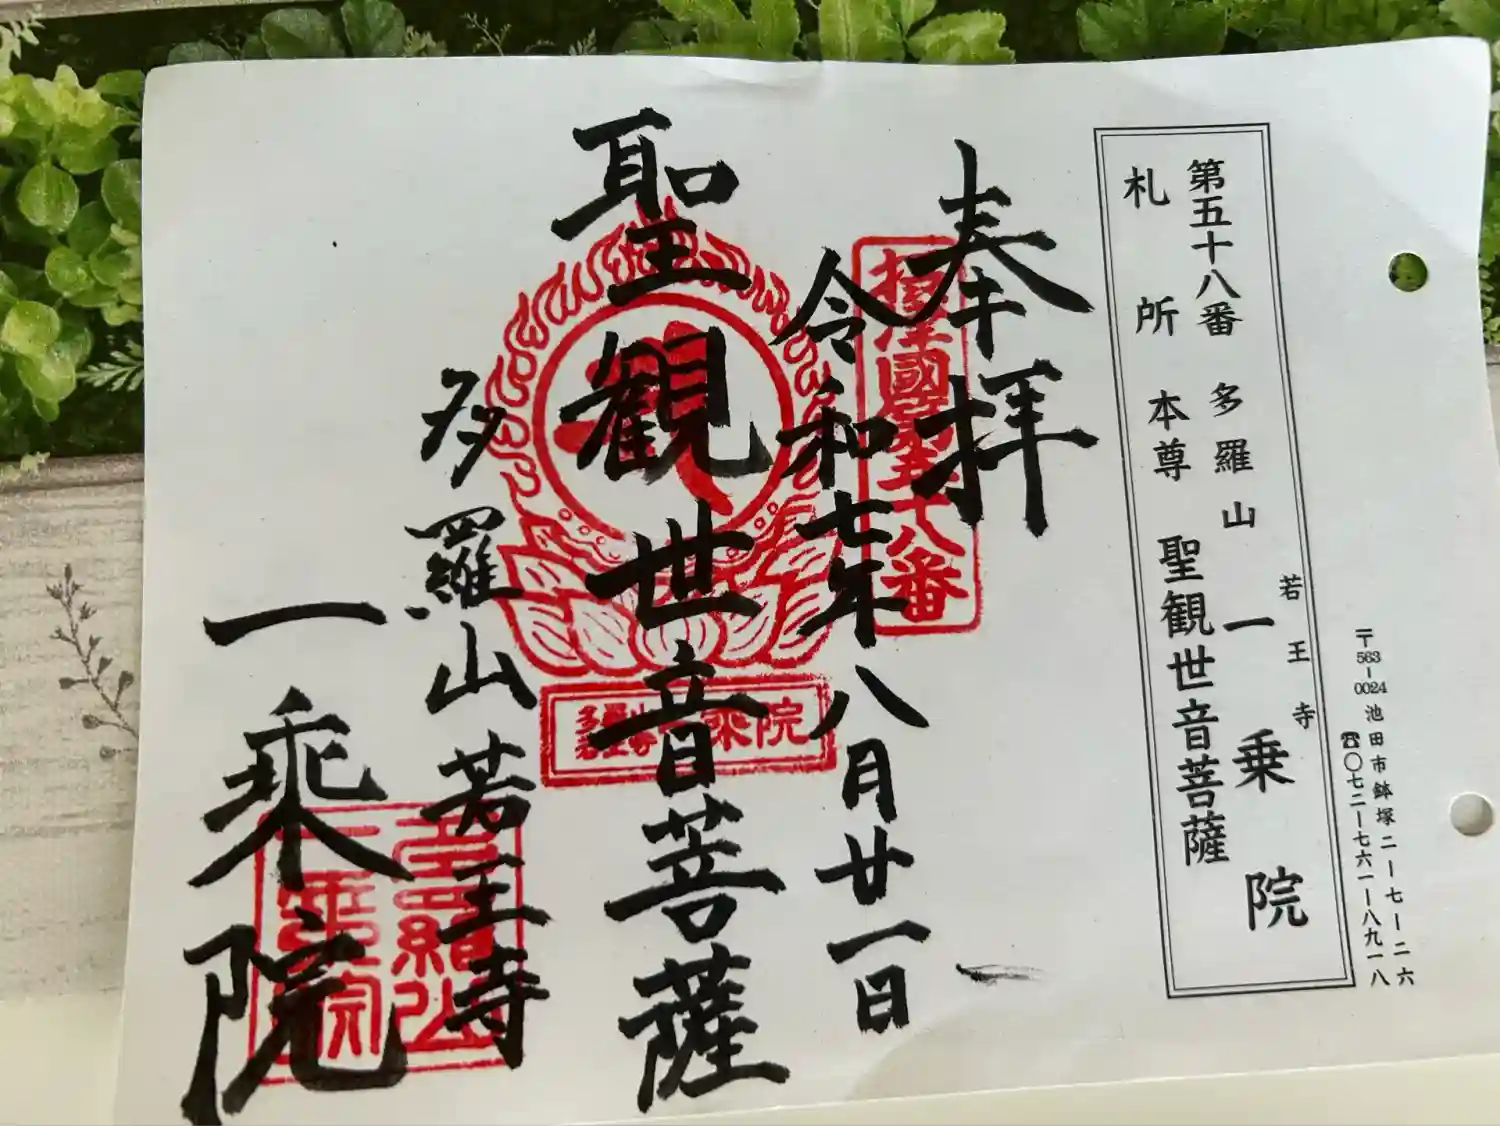 〒563-0024 池田市鉢塚二ー七ー二六
☎〇七二ー七六一ー八九一八
若王寺
第五十八番 多羅山 一乗院
札所本尊 聖観世音菩薩
奉拝
摂津國第五十八番
令和七年八月廿一日
聖観世音菩薩
乗院
多羅山若王寺
一乗院